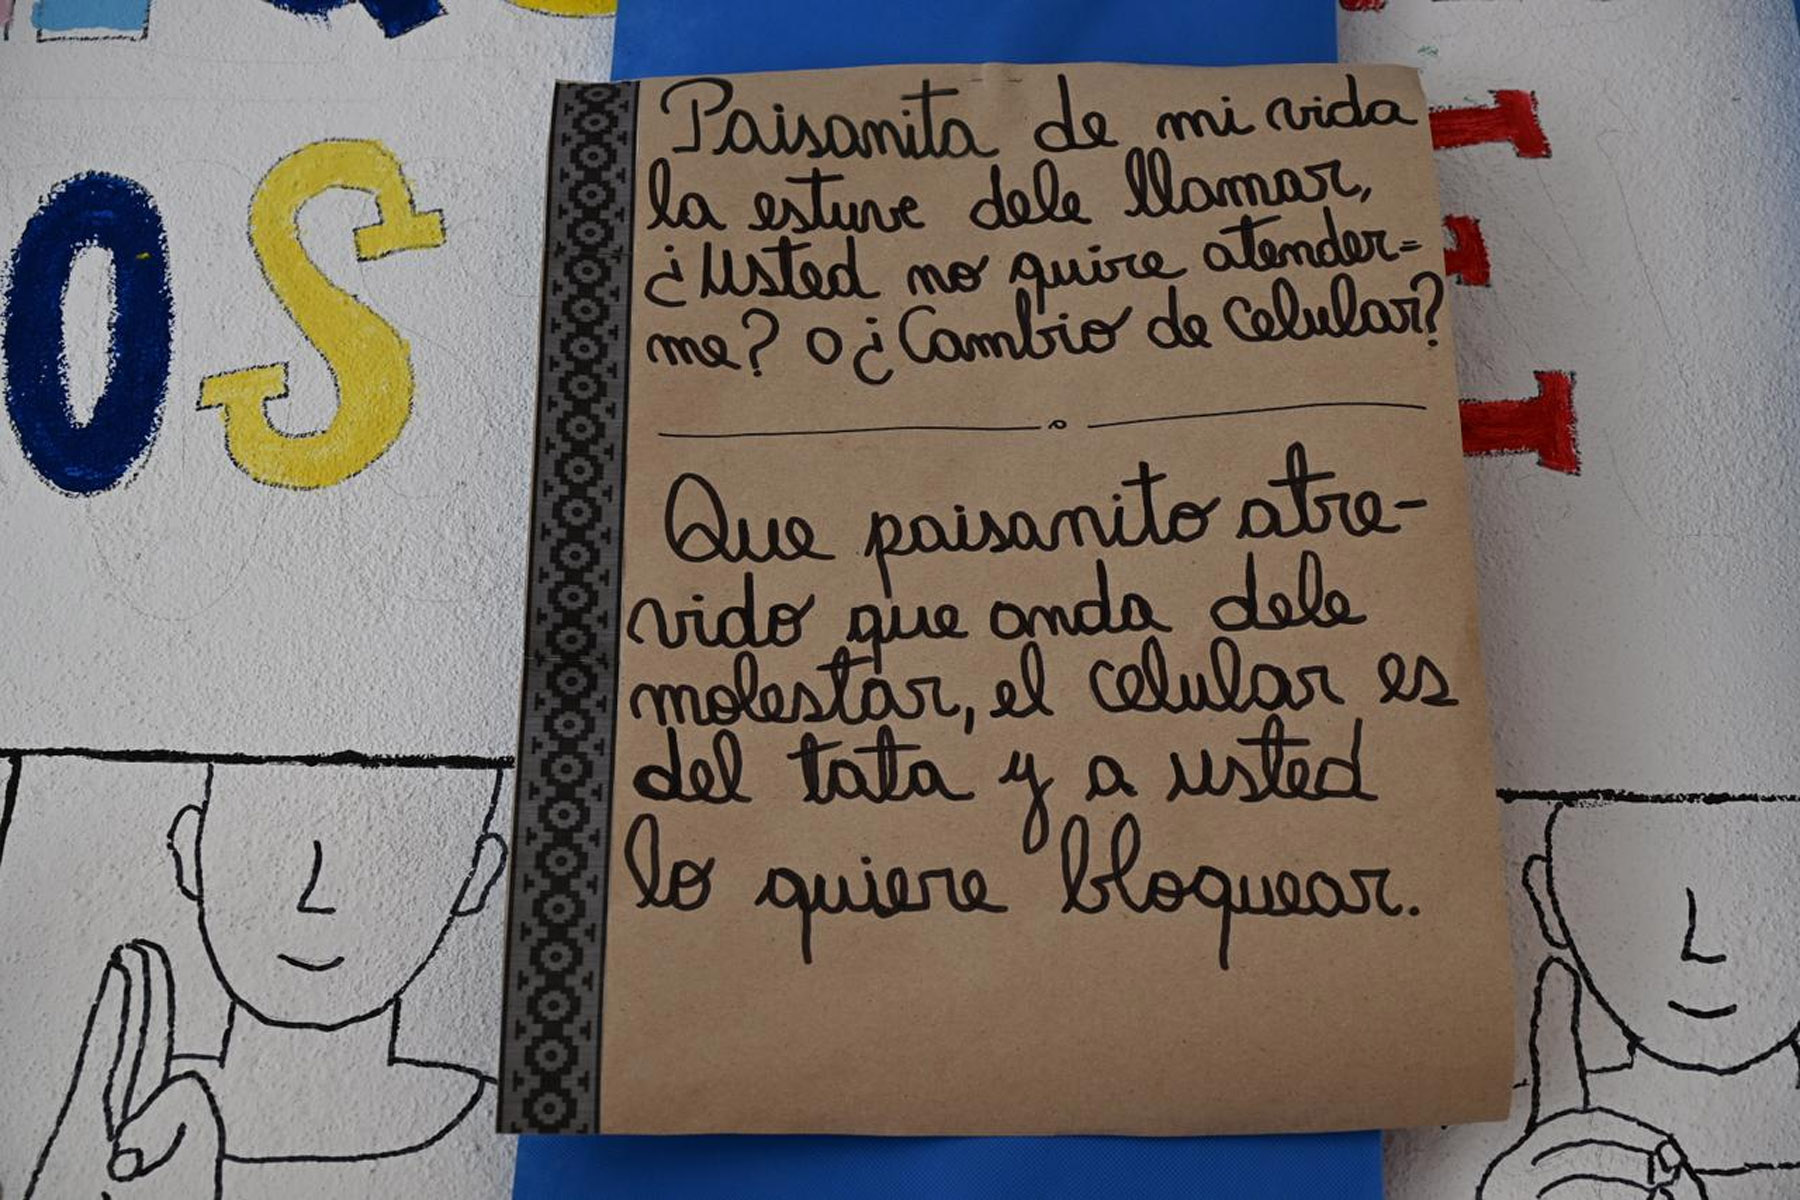 OS
Paisanita de mi vida
la estuve dele llamar,
¿Usted no quire atender=
me? o ¿Cambio de celular?
Que paisanito atre-
vido que anda dele
molestar, el celular es
del tata y a usted
lo quiere bloquear.